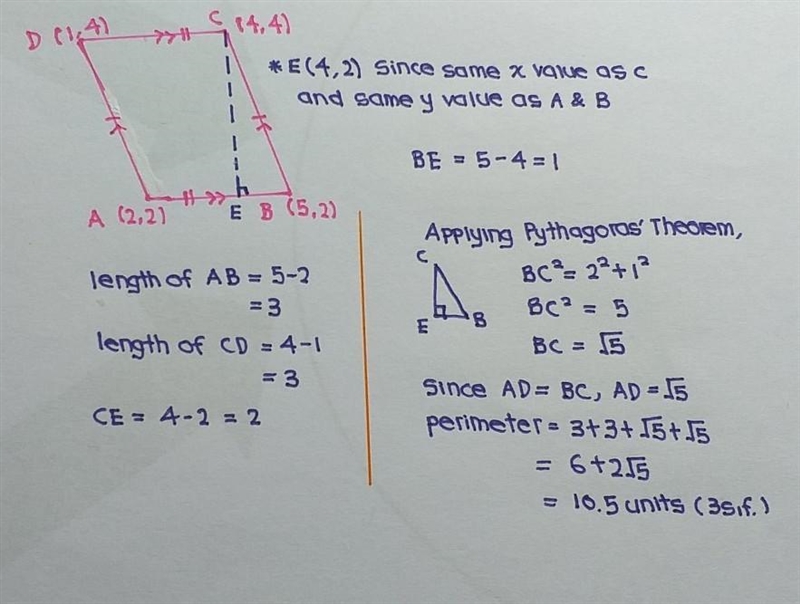 D (1,4)
C (4,4)
*E(4,2) since same x value as c
and same y value as A & B
BE = 5-4=1
A (2,2)
E
B (5,2)
length of AB = 5-2
=3
length of CD = 4-1
=3
CE = 4-2 = 2
Applying Pythagoras' Theorem,
C
E
B
BC² = 2²+1²
BC² = 5
BC = √5
Since AD = BC, AD = √5
perimeter = 3+3+√5+√5
= 6+2√5
= 10.5 units (3s.f.)